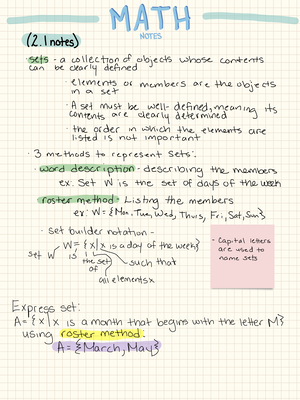 MATH
NOTES
(2.1 notes)
• sets - a collection of objects whose contents
can be clearly defined
• elements or members are the objects
in a set
• A set must be well-defined, meaning its
contents are clearly determined
• the order in which the elements are
listed is not important
• 3 methods to represent sets:
word description - describing the members
ex. Set W is the set of days of the week
roster method - Listing the members
ex: W = {Mon, Tue, Wed, Thurs, Fri, Sat, Sun}
• set builder notation -
W = {x|x is a day of the week}
set W is the set of all elements x such that
- Capital letters
are used to
name sets
Express set:
A = {x|x is a month that begins with the letter M}
using roster method:
A = {March, May}